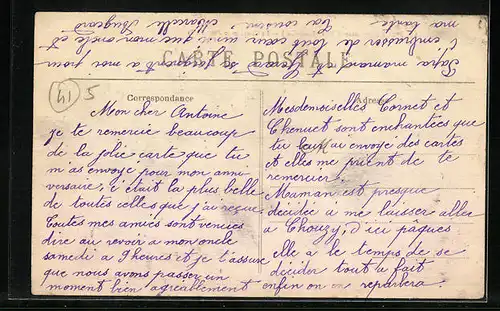 CARTE POSTALE
Correspondance
Adresse
41
5
Mon cher Antoine
je te remercie beaucoup
de la jolie carte que tu
m as envoyé pour mon anni
versaire, c'était la plus belle
de toutes celles que j'ai reçue
Toutes mes amies sont venues
dire au revoir à mon oncle
samedi a 9 heures et je t'assure
que nous avons passer un
moment bien agréablement
Mesdemoiselles Cornet et
Chenuet sont enchantées que
tu leur ai envoyé des cartes
et elles me prient de te
remercier.
Maman est presque
décidée a me laisser aller
a Chouzy, d'ici paques
elle a le temps de se
décider tout a fait
enfin on en reparlera.
Papa maman et Gérard se joignent a moi pour
t'embrasser de tout coeur ainsi que mon oncle et
ma tante
Ta cousine
Marcelle